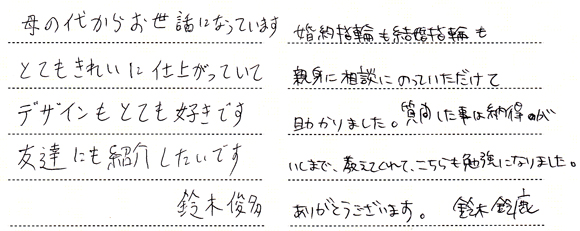 母の代からお世話になっています
とてもきれいに仕上がっていて
デザインもとても好きです
友達にも紹介したいです
鈴木俊多
婚約指輪も結婚指輪も
親身に相談にのっていただけて
助かりました。質問した事は納得のが
いくまで、教えてくれて、こちらも勉強になりました。
ありがとうございます。 鈴木鈴鹿